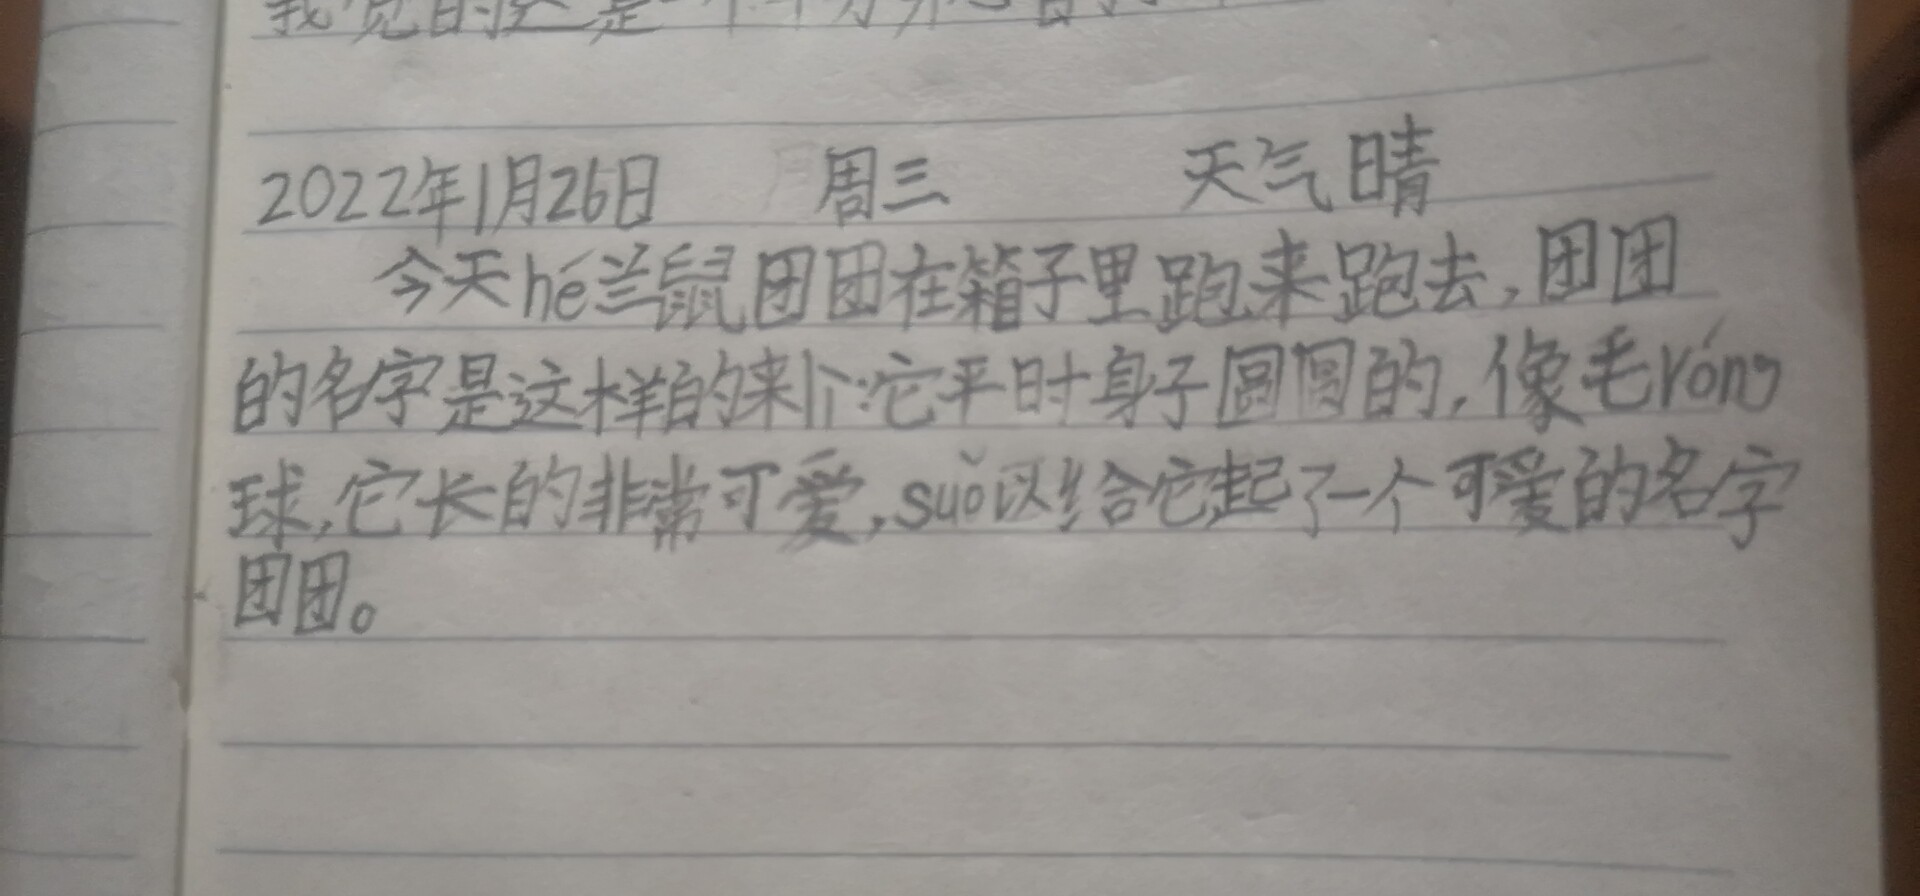 我觉的这是一个十分
2022年1月26日 周三 天气晴
今天hé兰鼠团团在箱子里跑来跑去，团团
的名字是这样的来lì：它平时身子圆圆的，像毛róng
球，它长的非常可爱，suǒ以给它起了一个可爱的名字
团团。